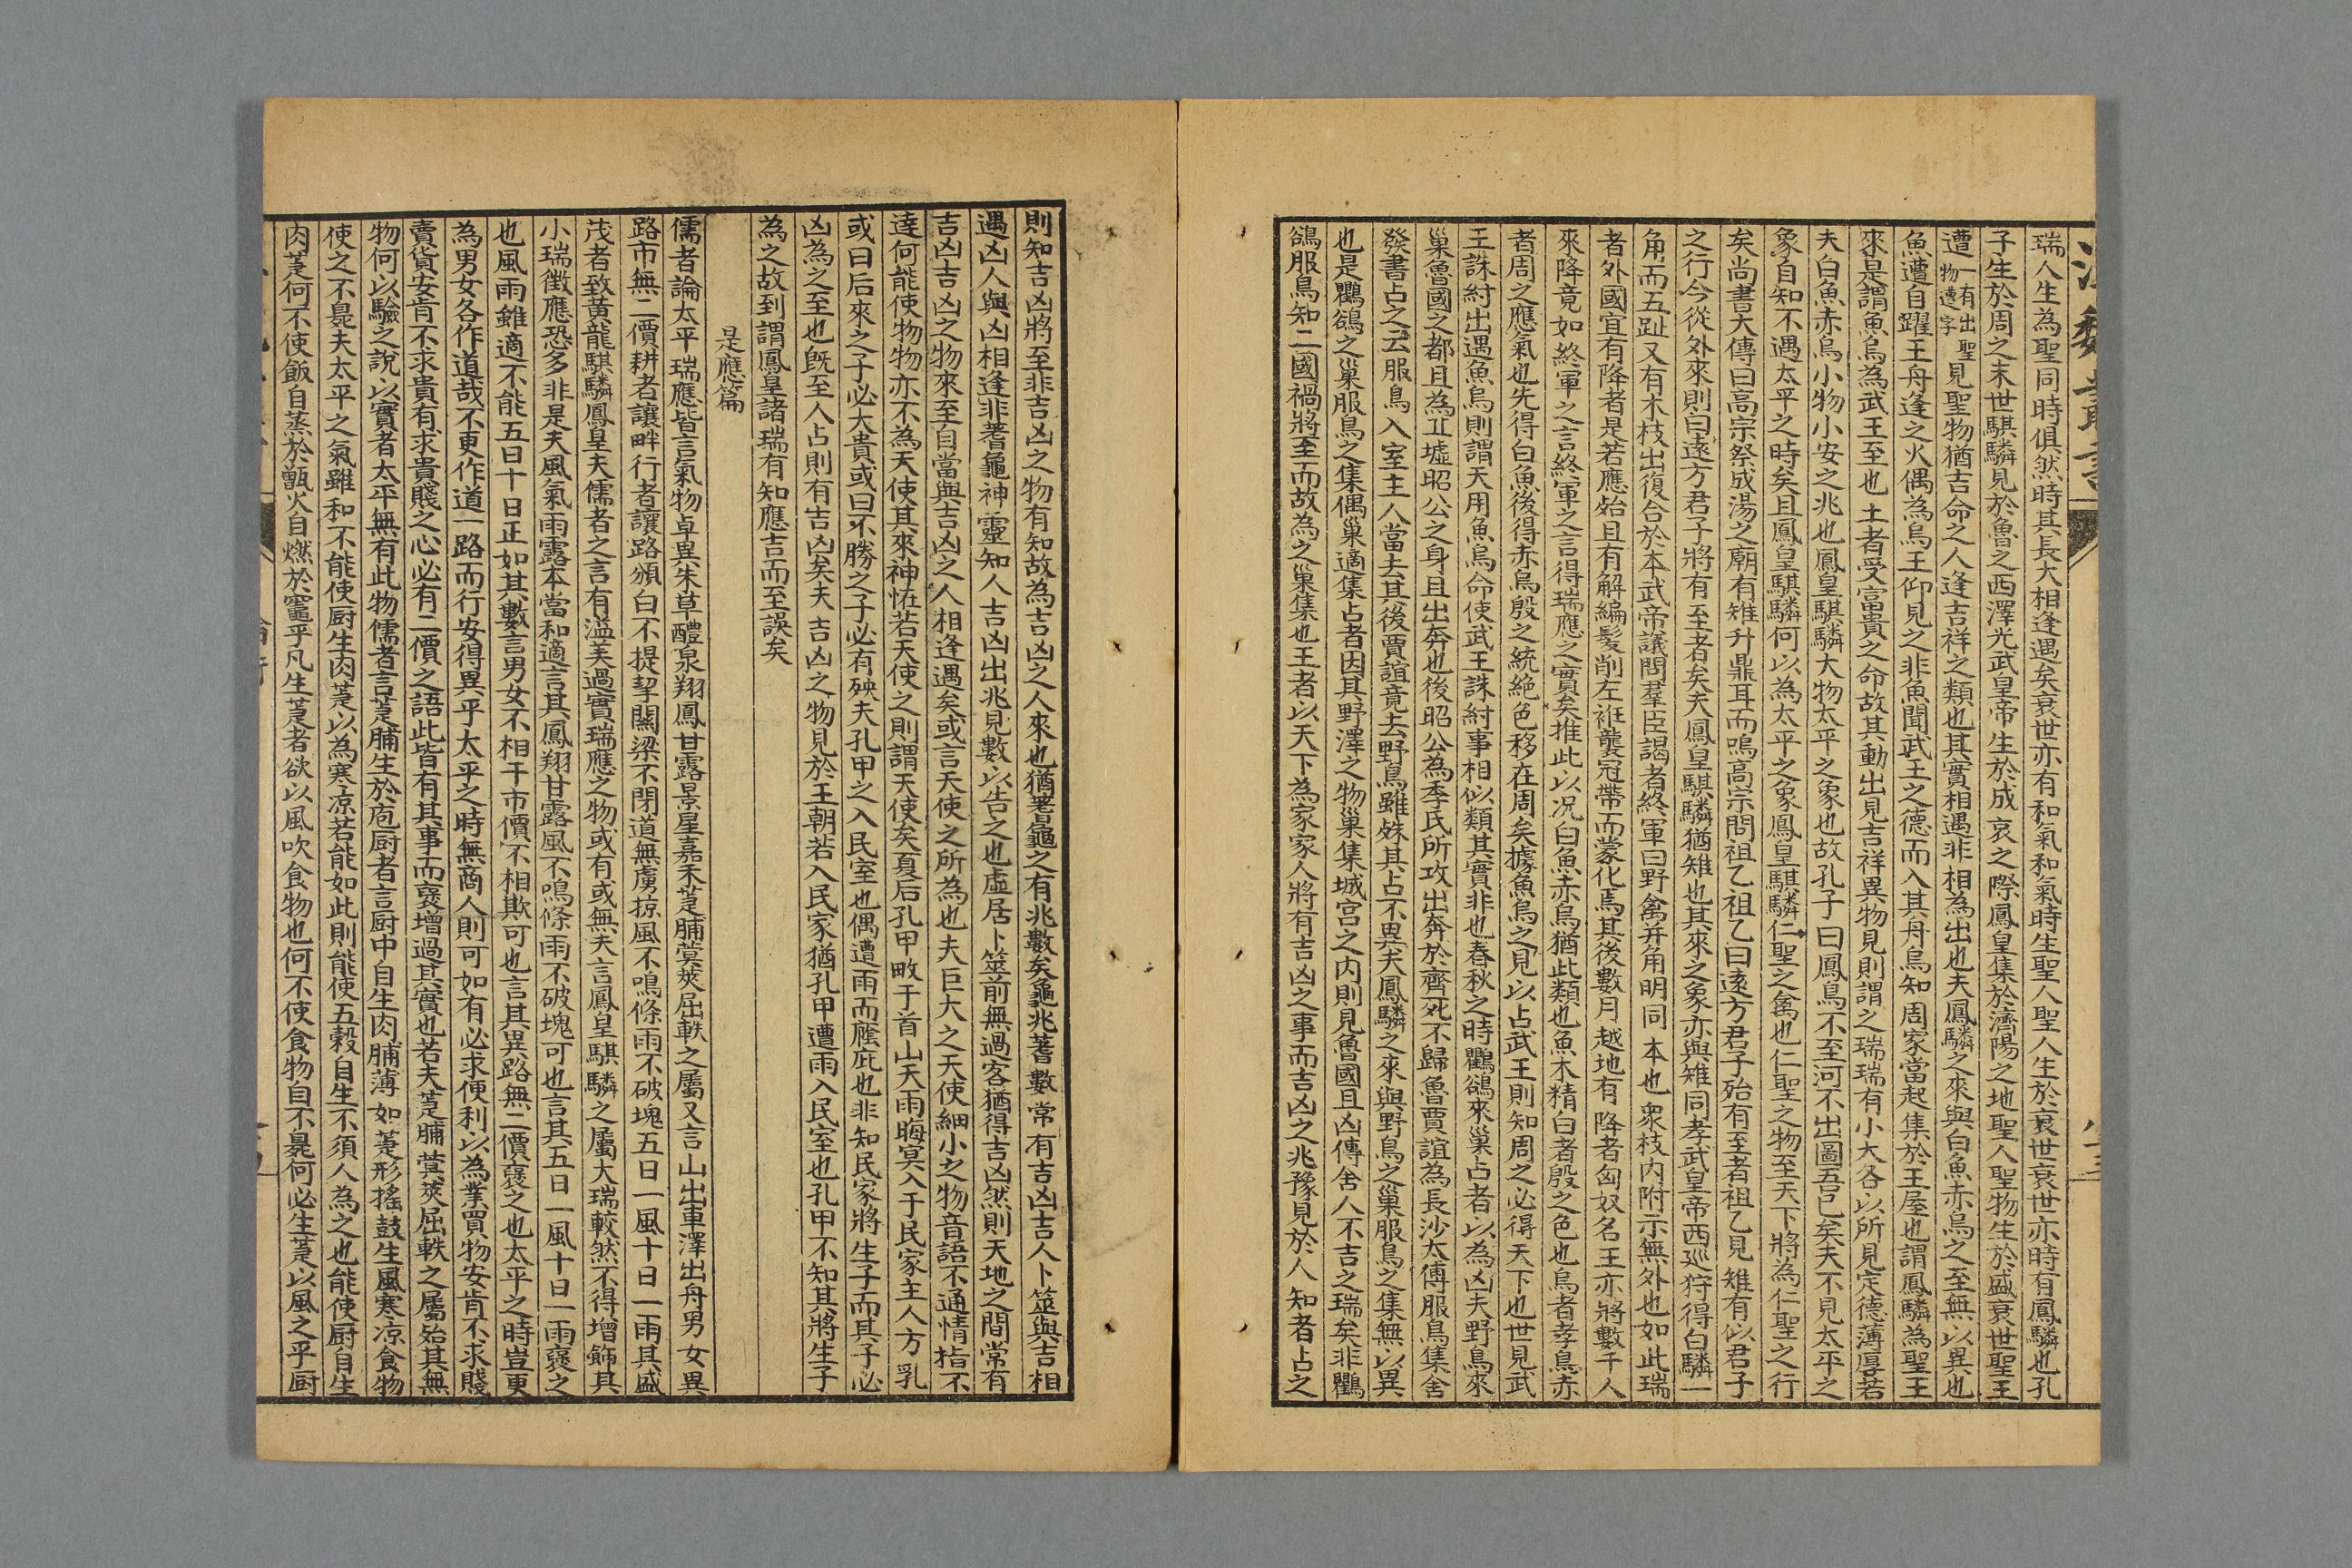 瑞人生為聖同時俱然時其長大相逢遇矣衰世亦有和氣和氣時生聖人聖人生於衰世衰世亦時有鳳驎也孔
子生於周之末世騏驎見於魯之西澤光武皇帝生於成哀之際鳳皇集於濟陽之地聖人聖物生於盛衰世聖王
遭一有出聖物遭字見聖物猶吉命之人逢吉祥之類也其實相遇非相為出也夫鳳驎之來與白魚赤烏之至無以異也
魚遭自躍王舟逢之火偶為烏王仰見之非魚聞武王之德而入其舟烏知周家當起集於王屋也謂鳳驎為聖王
來是謂魚烏為武王至也土者受富貴之命故其動出見吉祥異物見則謂之瑞瑞有小大各以所見定德薄厚若
夫白魚赤烏小物小安之兆也鳳皇騏驎大物太平之象也故孔子曰鳳鳥不至河不出圖吾已矣夫不見太平之
象自知不遇太平之時矣且鳳皇騏驎何以為太平之象鳳皇騏驎仁聖之禽也仁聖之物至天下將為仁聖之行
矣尚書大傳曰高宗祭成湯之廟有雉升鼎耳而鳴高宗問祖乙祖乙曰遠方君子殆有至者祖乙見雉有似君子
之行今從外來則曰遠方君子將有至者矣夫鳳皇騏驎猶雉也其來之象亦與雉同孝武皇帝西巡狩得白驎一
角而五趾又有木枝出復合於本武帝議問羣臣謁者終軍曰野禽并角明同本也衆枝內附示無外也如此瑞
者外國宜有降者是若應殆且有解編髮削左衽襲冠帶而蒙化焉其後數月越地有降者匈奴名王亦將數千人
來降竟如終軍之言終軍之言得瑞應之實矣推此以况白魚赤烏猶此類也魚木精白者殷之色也烏者孝鳥赤
者周之應氣也先得白魚後得赤烏殷之統絶色移在周矣據魚烏之見以占武王則知周之必得天下也世見武
王誅紂出遇魚烏則謂天用魚烏命使武王誅紂事相似類其實非也春秋之時鸜鵒來巢占者以為凶夫野鳥來
巢魯國之都且為丘墟昭公之身且出奔也後昭公為季氏所攻出奔於齊死不歸魯賈誼為長沙太傅服鳥集舍
發書占之云服鳥入室主人當去其後賈誼竟去野鳥雖殊其占不異夫鳳驎之來與野鳥之巢服鳥之集無以異
也是鸜鵒之巢服鳥之集偶巢適集占者因其野澤之物巢集城宮之內則見魯國且凶傳舍人不吉之瑞矣非鸜
鵒服鳥知二國禍將至而故為之巢集也王者以天下為家家人將有吉凶之事而吉凶之兆豫見於人知者占之
則知吉凶將至非吉凶之物有知故為吉凶之人來也猶蓍龜之有兆數矣龜兆蓍數常有吉凶吉人卜筮與吉相
遇凶人與凶相逢非蓍龜神靈知人吉凶出兆見數以告之也虛居卜筮前無過客猶得吉凶然則天地之間常有
吉凶吉凶之物來至自當與吉凶之人相逢遇矣或言天使之所為也夫巨大之天使細小之物音語不通情指不
達何能使物物亦不為天使其來神恠若天使之則謂天使矣夏后孔甲畋于首山天雨晦冥入于民家主人方乳
或曰后來之子必大貴或曰不勝之子必有殃夫孔甲之入民室也偶遭雨而廕庇也非知民家將生子而其子必
凶為之至也旣至人占則有吉凶矣夫吉凶之物見於王朝若入民家猶孔甲遭雨入民室也孔甲不知其將生子
為之故到謂鳳皇諸瑞有知應吉而至誤矣
是應篇
儒者論太平瑞應皆言氣物卓異朱草醴泉翔鳳甘露景星嘉禾萐脯蓂莢屈軼之屬又言山出車澤出舟男女異
路市無二價耕者讓畔行者讓路頒白不提挈關梁不閉道無虜掠風不鳴條雨不破塊五日一風十日一雨其盛
茂者致黃龍騏驎鳳皇夫儒者之言有溢美過實瑞應之物或有或無夫言鳳皇騏驎之屬大瑞較然不得增飾其
小瑞徵應恐多非是夫風氣雨露本當和適言其鳳翔甘露風不鳴條雨不破塊可也言其五日一風十日一雨褒之
也風雨雖適不能五日十日正如其數言男女不相干市價不相欺可也言其異路無二價褒之也太平之時豈更
為男女各作道哉不更作道一路而行安得異乎太平之時無商人則可如有必求便利以為業買物安肯不求賤
賣貨安肯不求貴有求貴賤之心必有二價之語此皆有其事而褒增過其實也若夫萐脯蓂莢屈軼之屬殆其無
物何以驗之說以實者太平無有此物儒者言萐脯生於庖厨者言厨中自生肉脯薄如萐形搖鼓生風寒凉食物
使之不臰夫太平之氣雖和不能使厨生肉萐以為寒凉若能如此則能使五穀自生不須人為之也能使厨自生
肉萐何不使飯自蒸於甑火自燃於竈乎凡生萐者欲以風吹食物也何不使食物自不臰何必生萐以風之乎厨